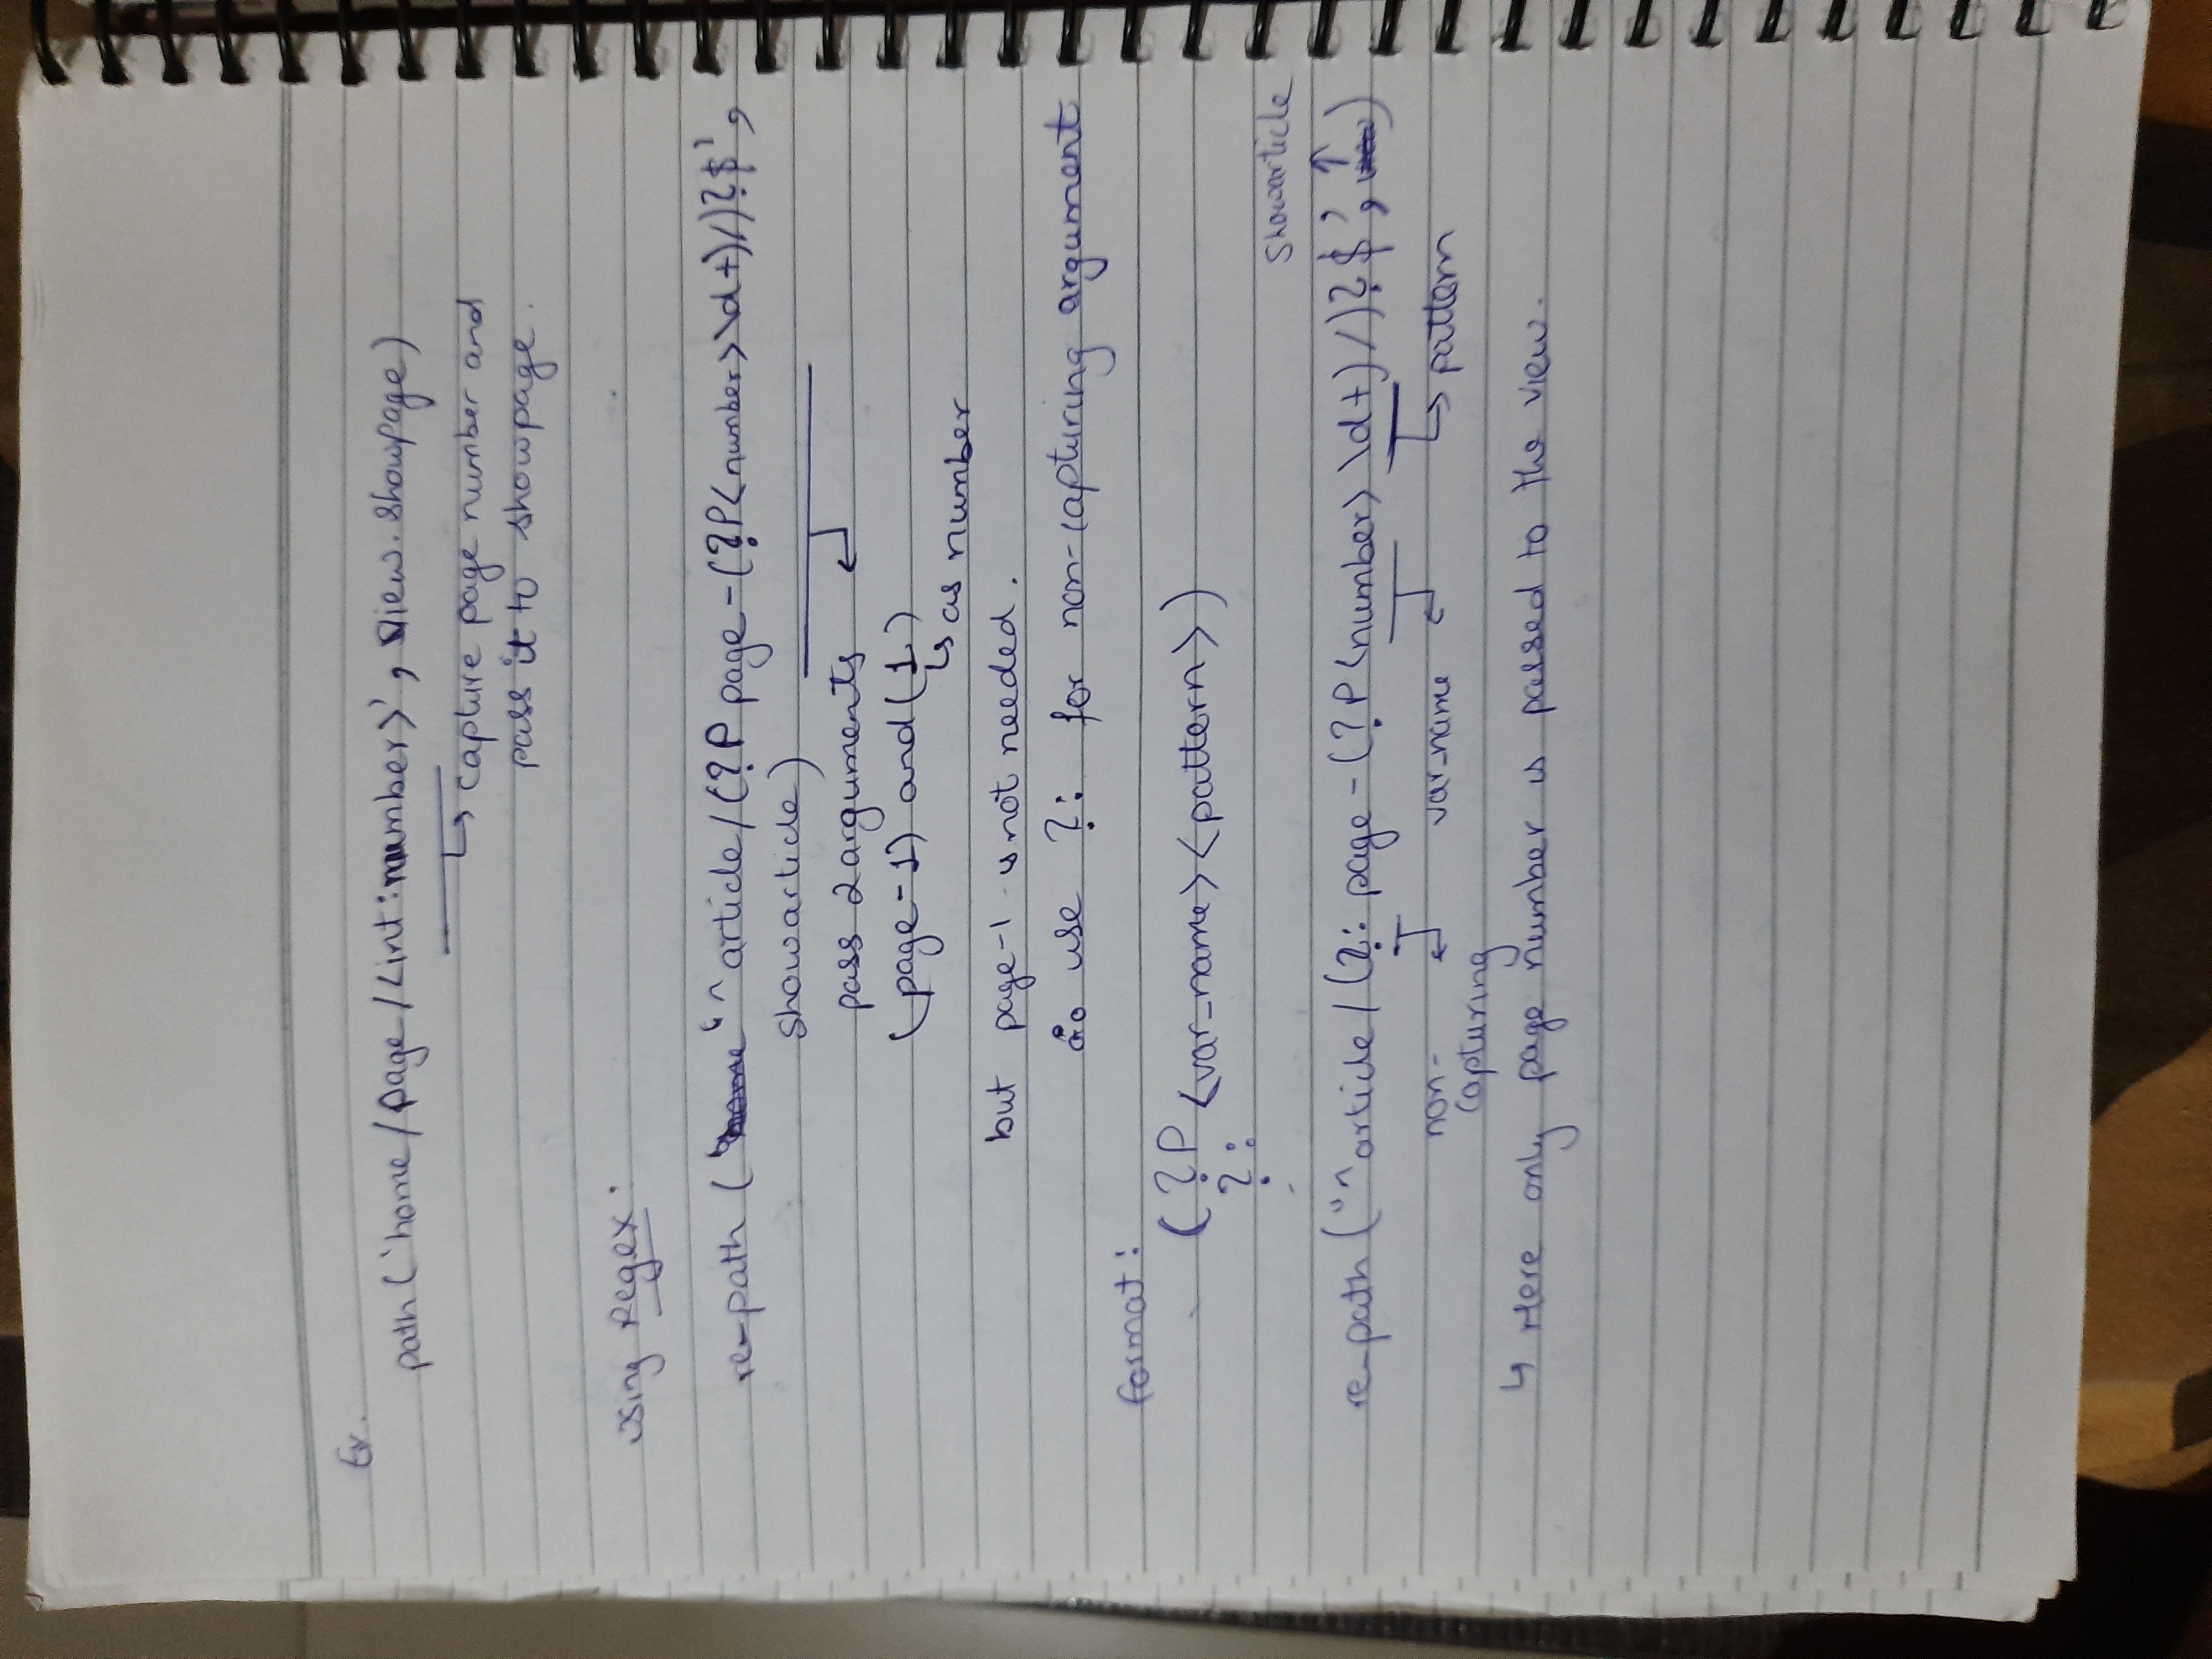 Ex.
path('home/page/<int:number>', view.showpage)
↳ capture page number and
pass it to showpage.
using Regex:
re_path ( '^article/(?P page-(?P<number>\d+)/)?$',
showarticle)
pass 2 arguments ↵
(page-1) and (1)
↳ as number
but page-1 is not needed.
so use ?: for non-capturing argument
format:
(?P <var_name><pattern>)
?:
showarticle
re_path ("^article/(?: page-(?P<number> \d+)/)?$', )
non- ↵ var_name ↵ ↳ pattern
capturing
↳ Here only page number is passed to the view.